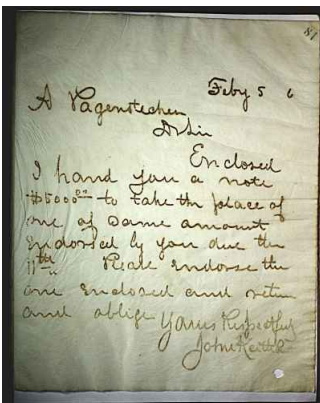 81
Feby 5 6
A Pagenstecher
D Sir
Enclosed
I hand you a note
$5000 00 to take the place of
one of same amount
endorsed by you due the
11th. Please endorse the
one enclosed and return
and oblige Yours Respectfuly
John Keith